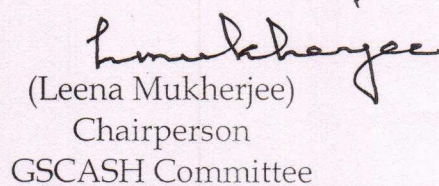 Lmukherjee
(Leena Mukherjee)
Chairperson
GSCASH Committee